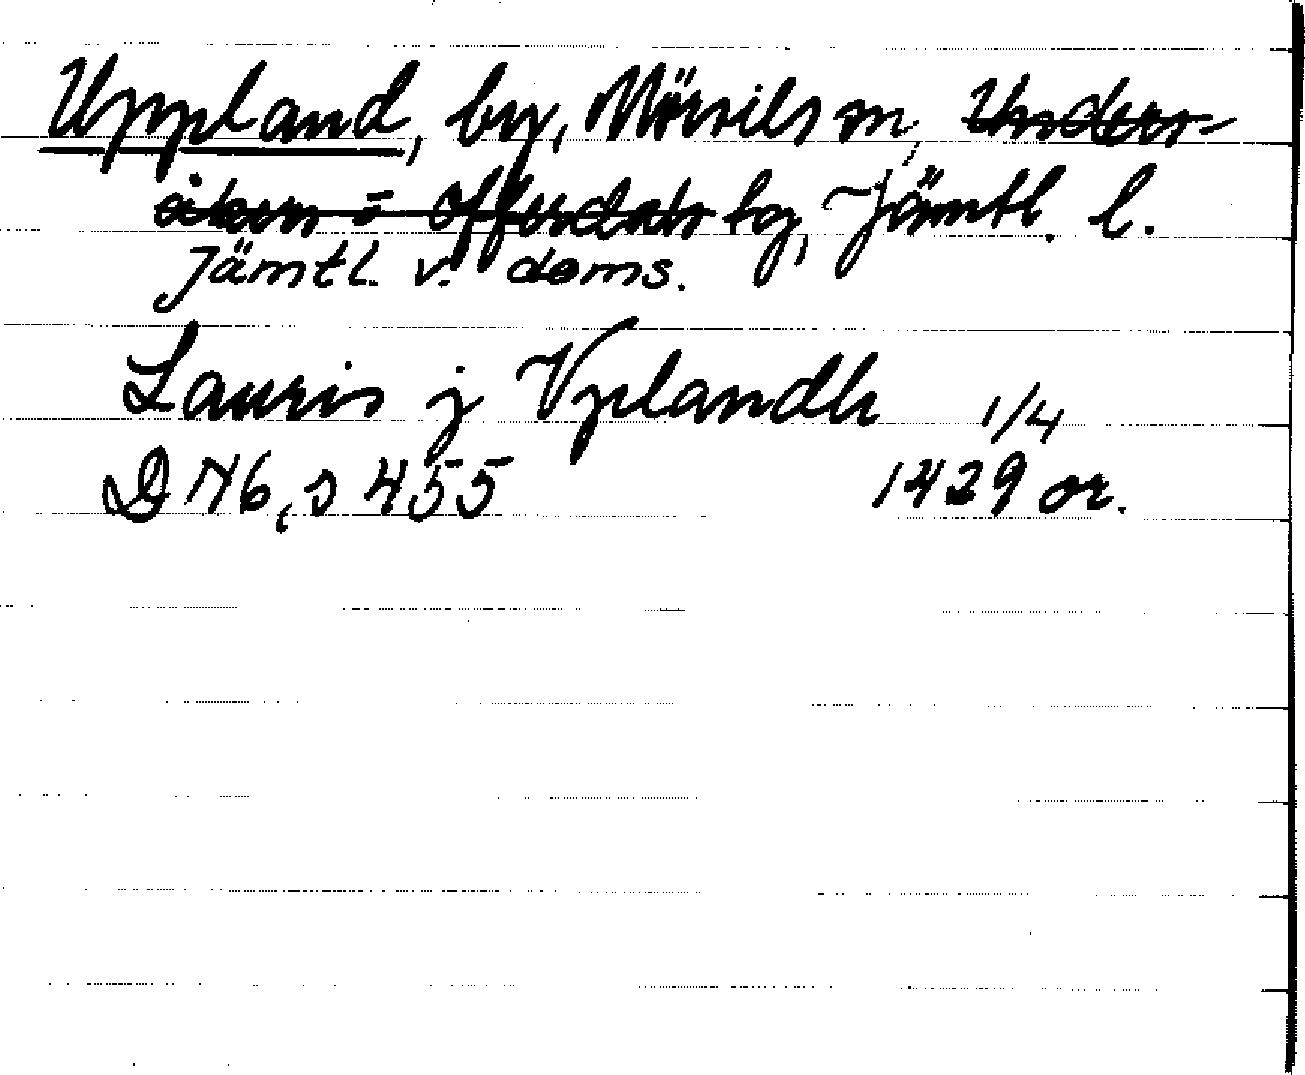 Uppland, by, Mörsils sn, Unders-
åkers o Offerdals tg, Jämtl. l.
Jämtl. v. doms.
Lauris j Vplandh 1/4
D 76, s 455 1429 or.